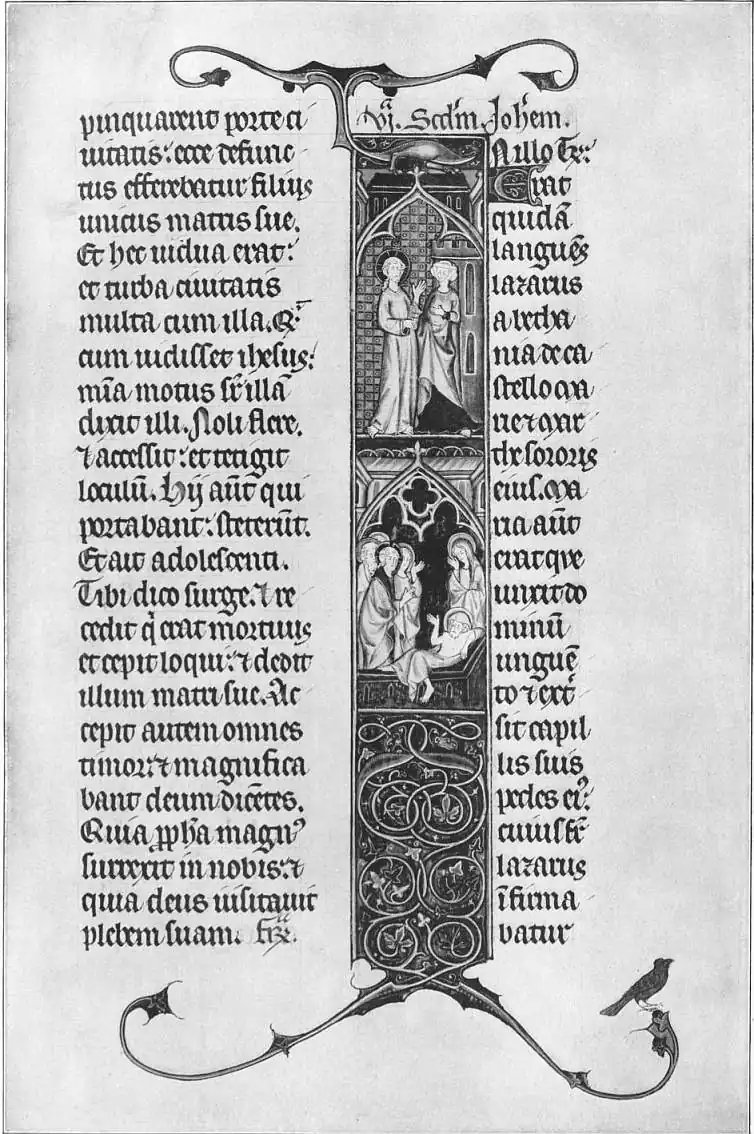 pinquarent porte ci
uitatis: ecce defunc
tus efferebatur filius
unicus matris sue.
Et hec uidua erat:
et turba ciuitatis
multa cum illa. Q̄
cum uidisset ihesus:
mīa motus sr̄ illā
dixit illi. Noli flere.
⁊ accessit: et tetigit
loculū. Hij aūt qui
portabant: steterūt.
Et ait adolescenti.
Tibi dico surge. ⁊ re
cedit q̇ erat mortuus
et cepit loqui: ⁊ dedit
illum matri sue. Ac
cepit autem omnes
timor: ⁊ magnifica
bant deum dicētes.
Quia ꝓpħa magn᾿
surrexit in nobis: ⁊
quia deus uisitauit
plebem suam.
Scdm̄ Joħem.
N illo
Erat
quidā
languēs
lazarus
a betha
nia de ca
stello ma
rie ⁊ mar
the sororis
eius. Ma
ria aūt
erat que
unxit do
minū
unguē
to ⁊ ext̄
sit capil
lis suis
pedes ei᾿:
cuius fr̄
lazarus
īfirma
batur